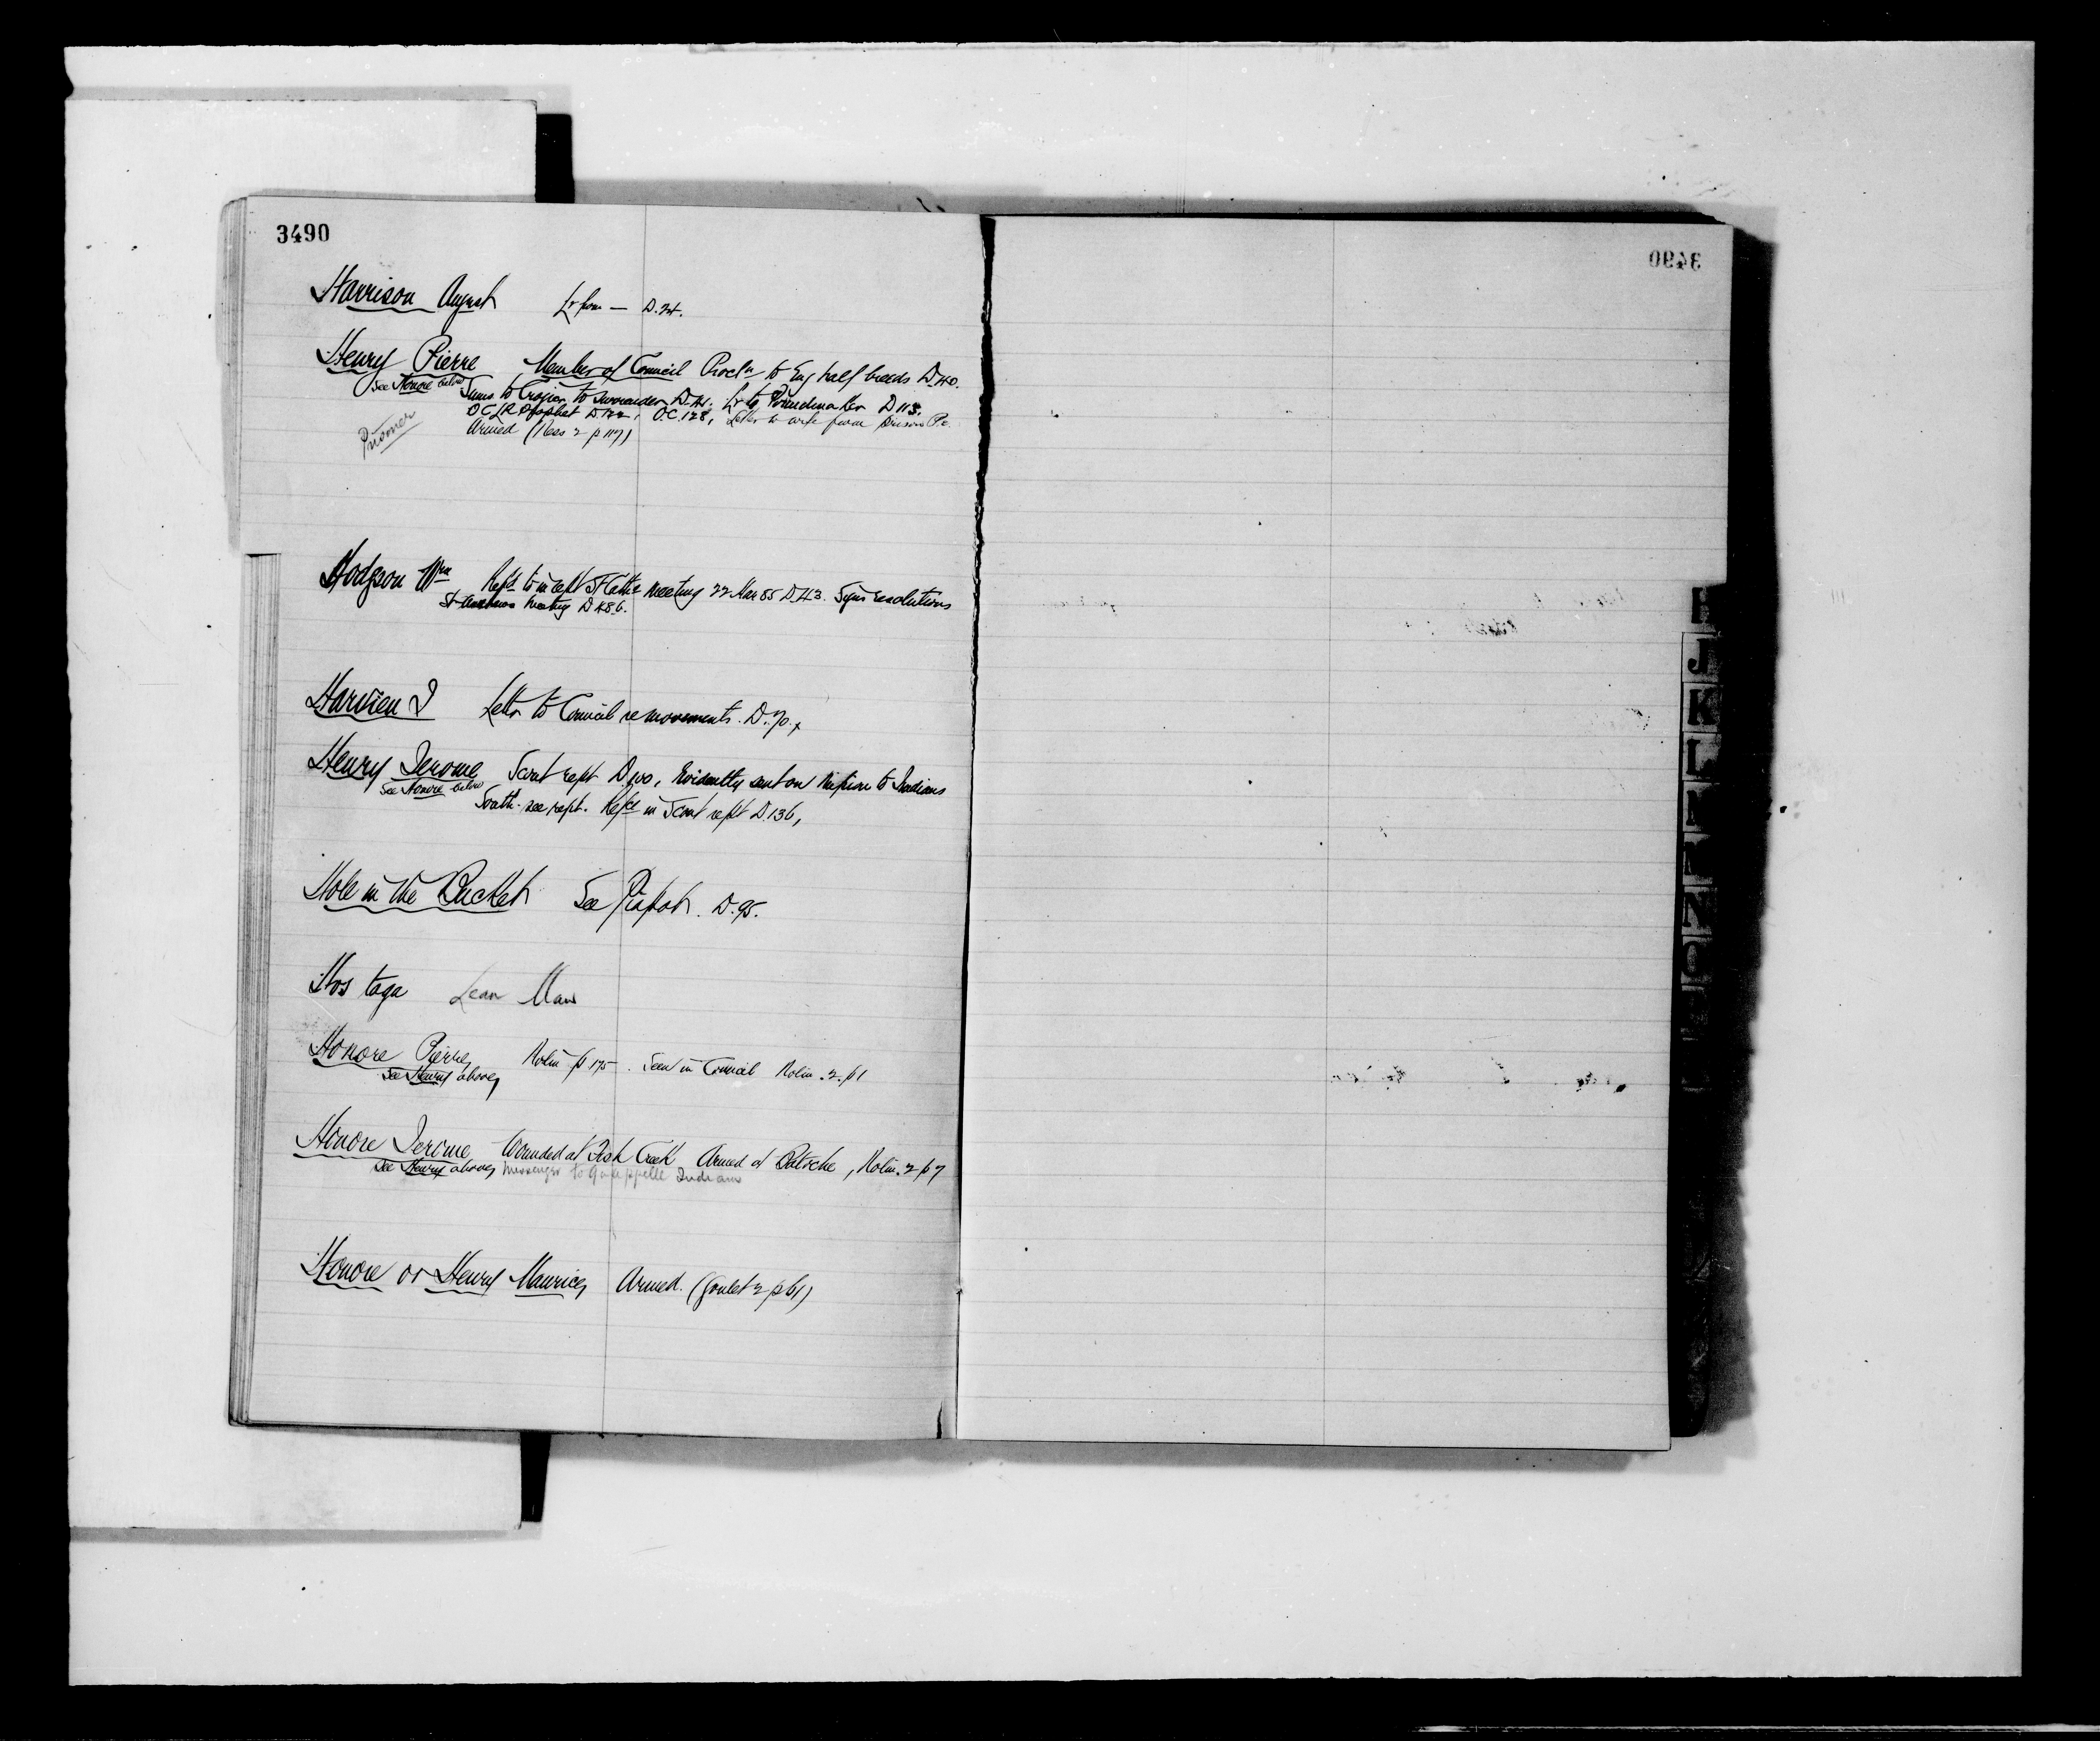 3490
Harrison August Lr from — D.24.
Henry Pierre Member of Council Procln to Eng half breeds D.40.
See Honore below Sums to Crozier to surrender D.41. Lr to Poundmaker D 113.
O.C. LR Prophet D 122, O.C. 128, Letter to wife from prison
Armed (Ness 2 p 117)
Prisoner
Hodgson Wm Refd to in rept St Cathe meeting 22 Mar 85 D.43. Signs resolutions
St meeting D 48.6.
Harvien J Letter to Council re movements. D.70.
Henry Jerome Scout rept D.100, Evidently sent on mission to Indians
See Honore below South - see rept. Refce in Scout rept D.136,
Hole in the Bucket See Piapot. D.95.
Hos taga Lean Man
Honore Pierre Nolin p 175. Seen in Council Nolin. 2. p 1
See Henry above
Honore Jerome Wounded at Fish Creek Armed at Batoche, Nolin. 2 p 7
See Henry above Messenger to Qu'appelle Indians
Honore or Henry Maurice Armed. (Goulet 2 p 61)
3490
J
K
L